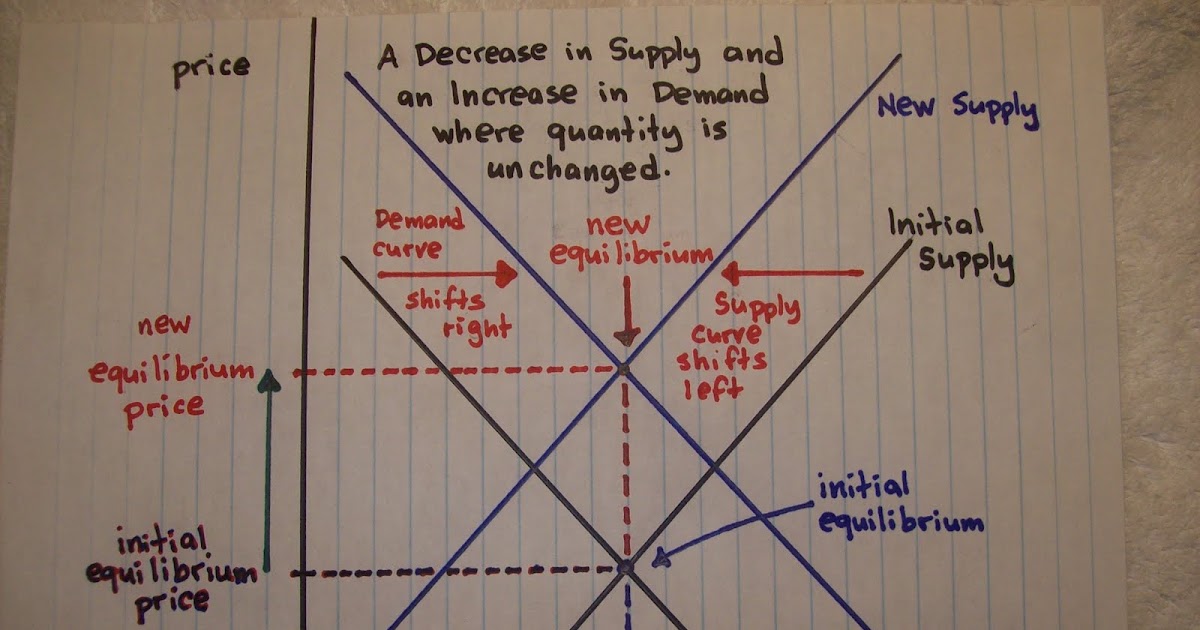 price
A Decrease in Supply and
an Increase in Demand
where quantity is
unchanged.
New Supply
Demand
curve
shifts
right
new
equilibrium
Initial
Supply
Supply
curve
shifts
left
new
equilibrium
price
initial
equilibrium
initial
equilibrium
price